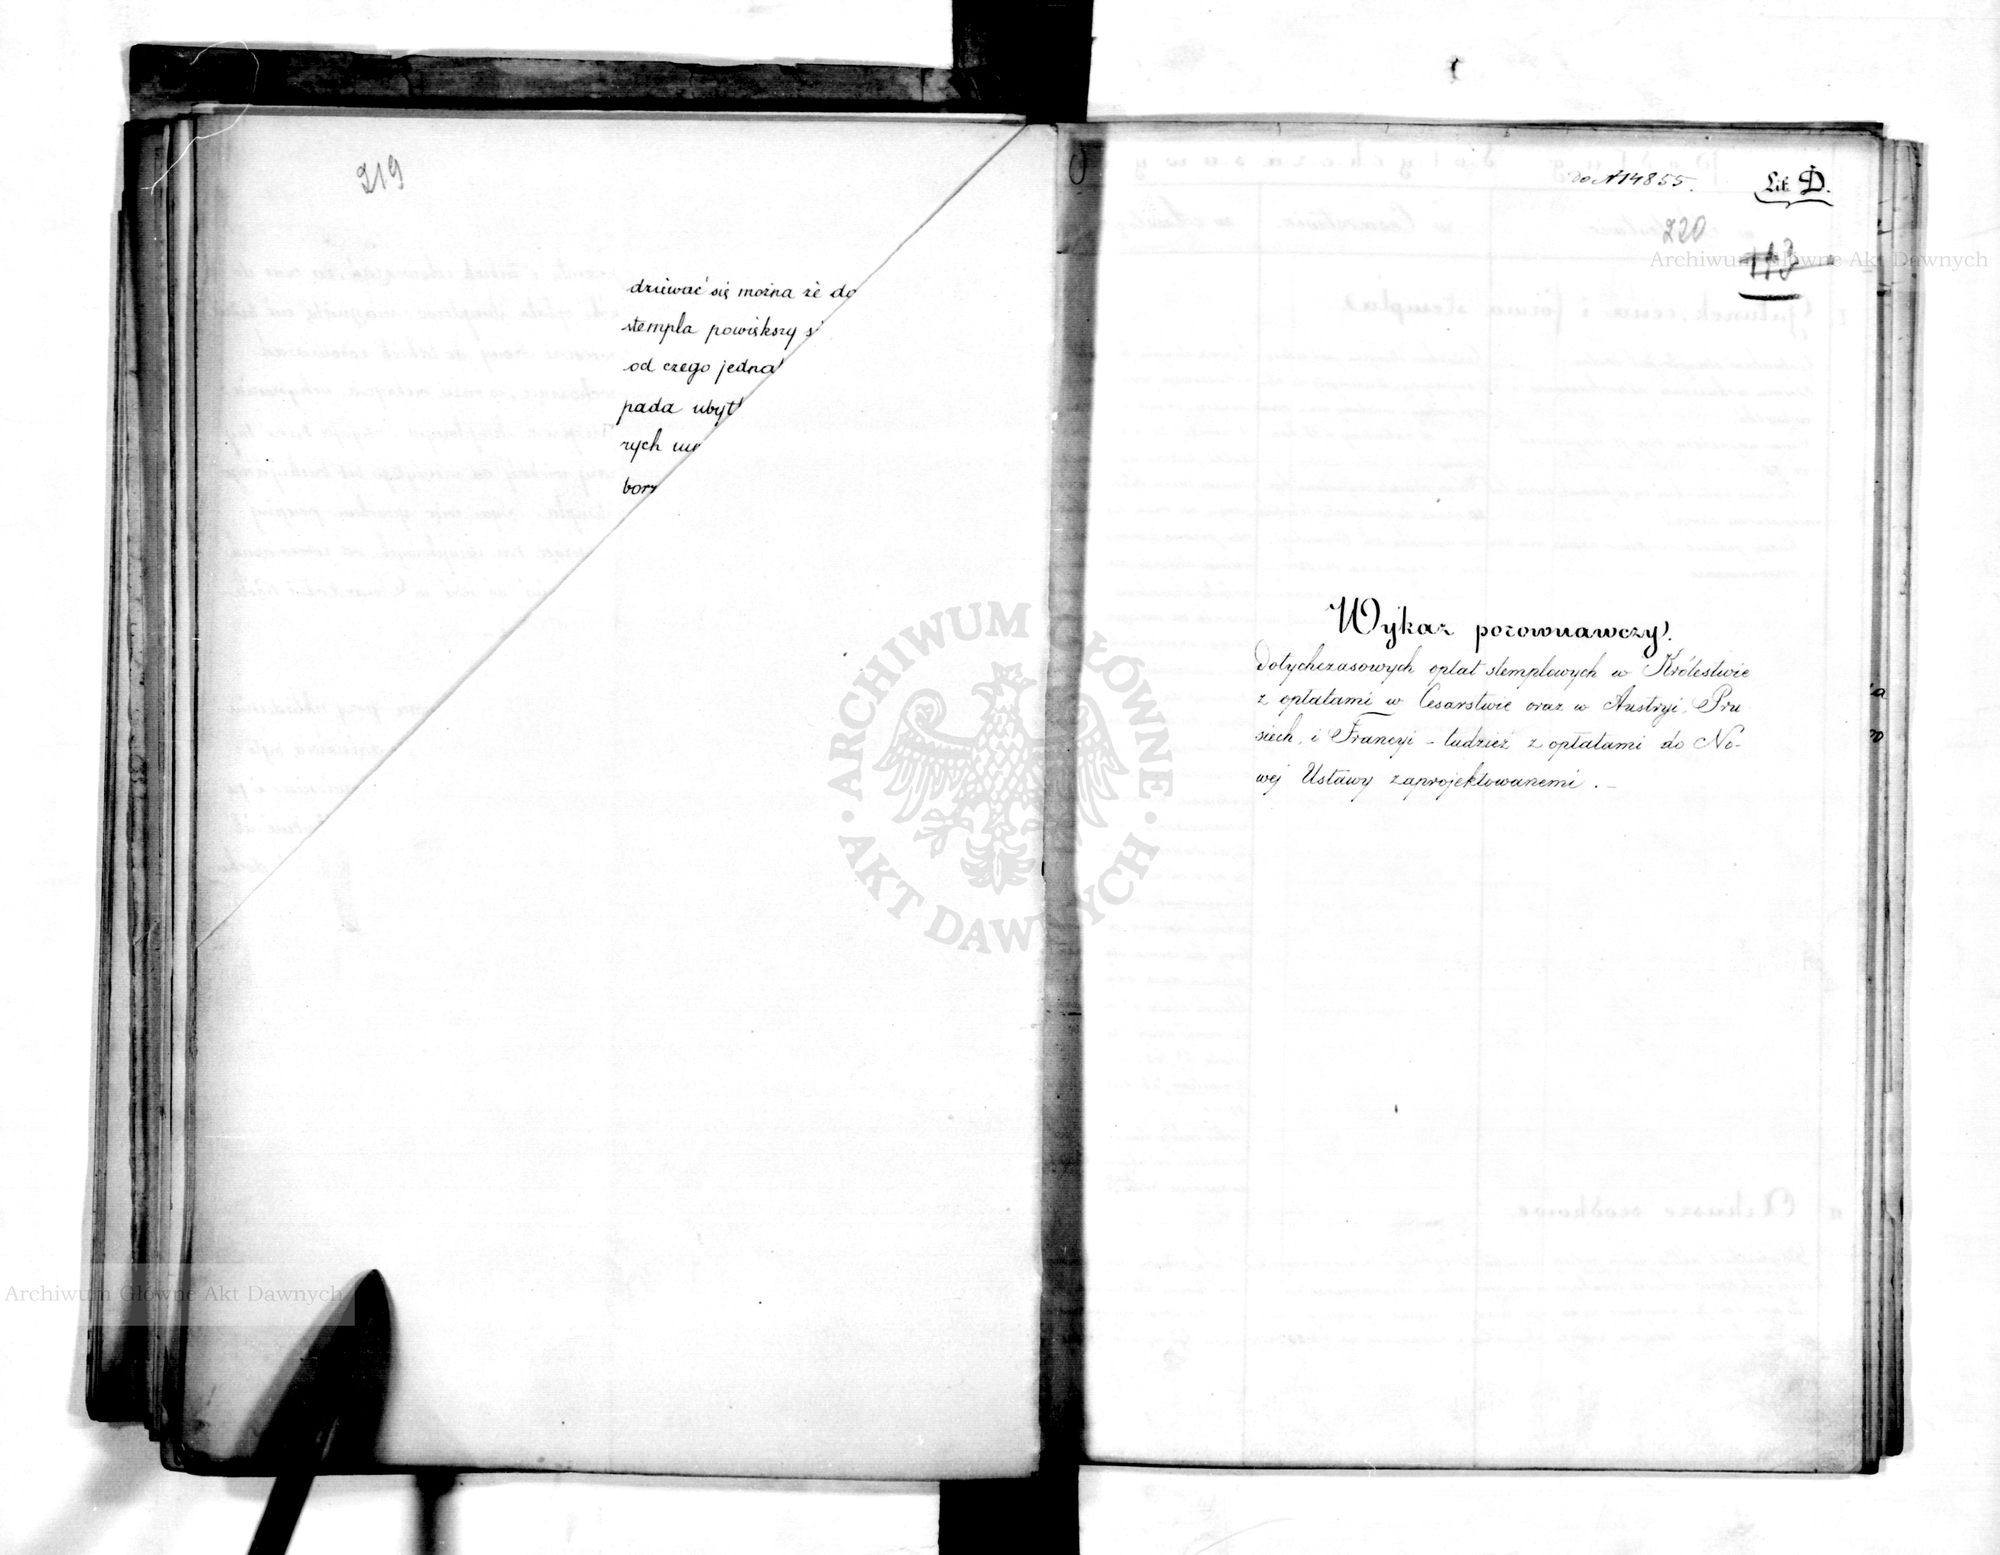 219
dziewać się można że do
stempla powiększy s
od czego jedna
pada ubyt
rych
borz
do N 14855.
Lit. D.
220
113
Wykaz porownawczy.
Dotychczasowych opłat stemplowych w Królestwie
z opłatami w Cesarstwie oraz w Austryi, Pru-
siech, i Francyi - tudzież z opłatami do No-
wéj Ustawy zaprojektowanemi. -
Archiwum Główne Akt Dawnych
ARCHIWUM GŁÓWNE AKT DAWNYCH
Archiwum Główne Akt Dawnych